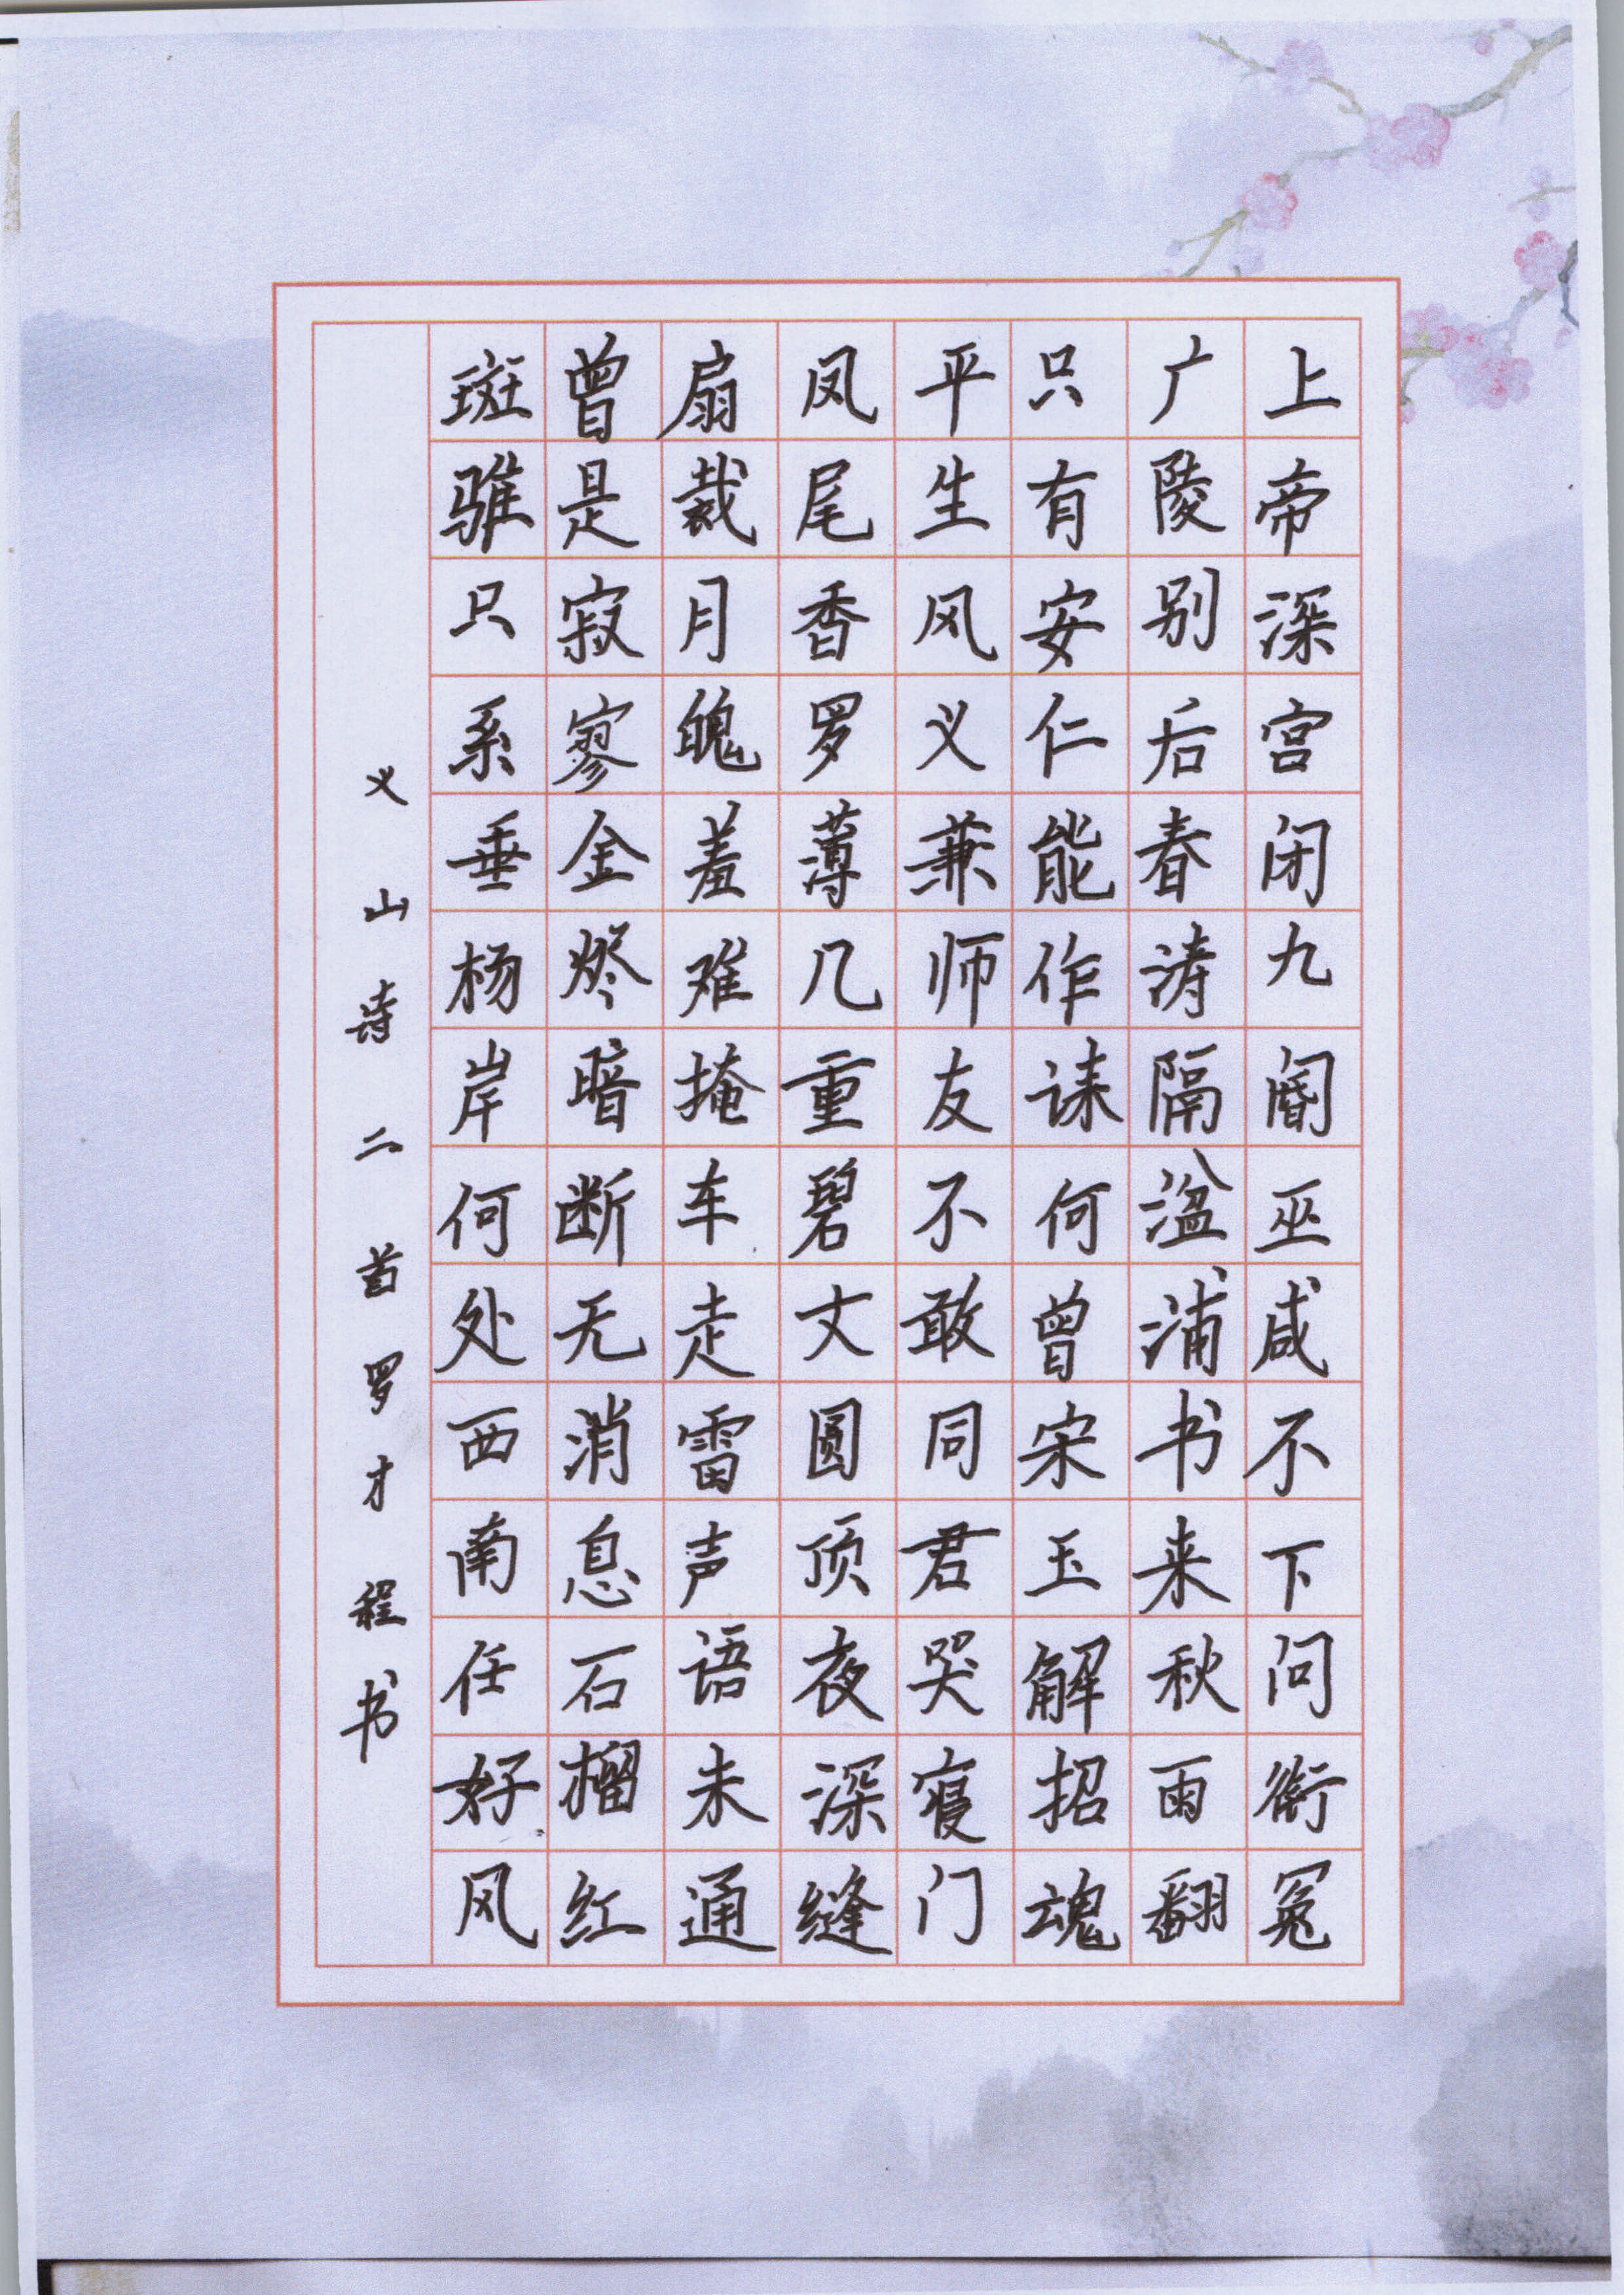 上帝深宫闭九阍巫咸不下问衔冤
广陵别后春涛隔湓浦书来秋雨翻
只有安仁能作诔何曾宋玉解招魂
平生风义兼师友不敢同君哭寝门
凤尾香罗薄几重碧文圆顶夜深缝
扇裁月魄羞难掩车走雷声语未通
曾是寂寥金烬暗断无消息石榴红
斑骓只系垂杨岸何处西南任好风
义山诗二首罗才程书